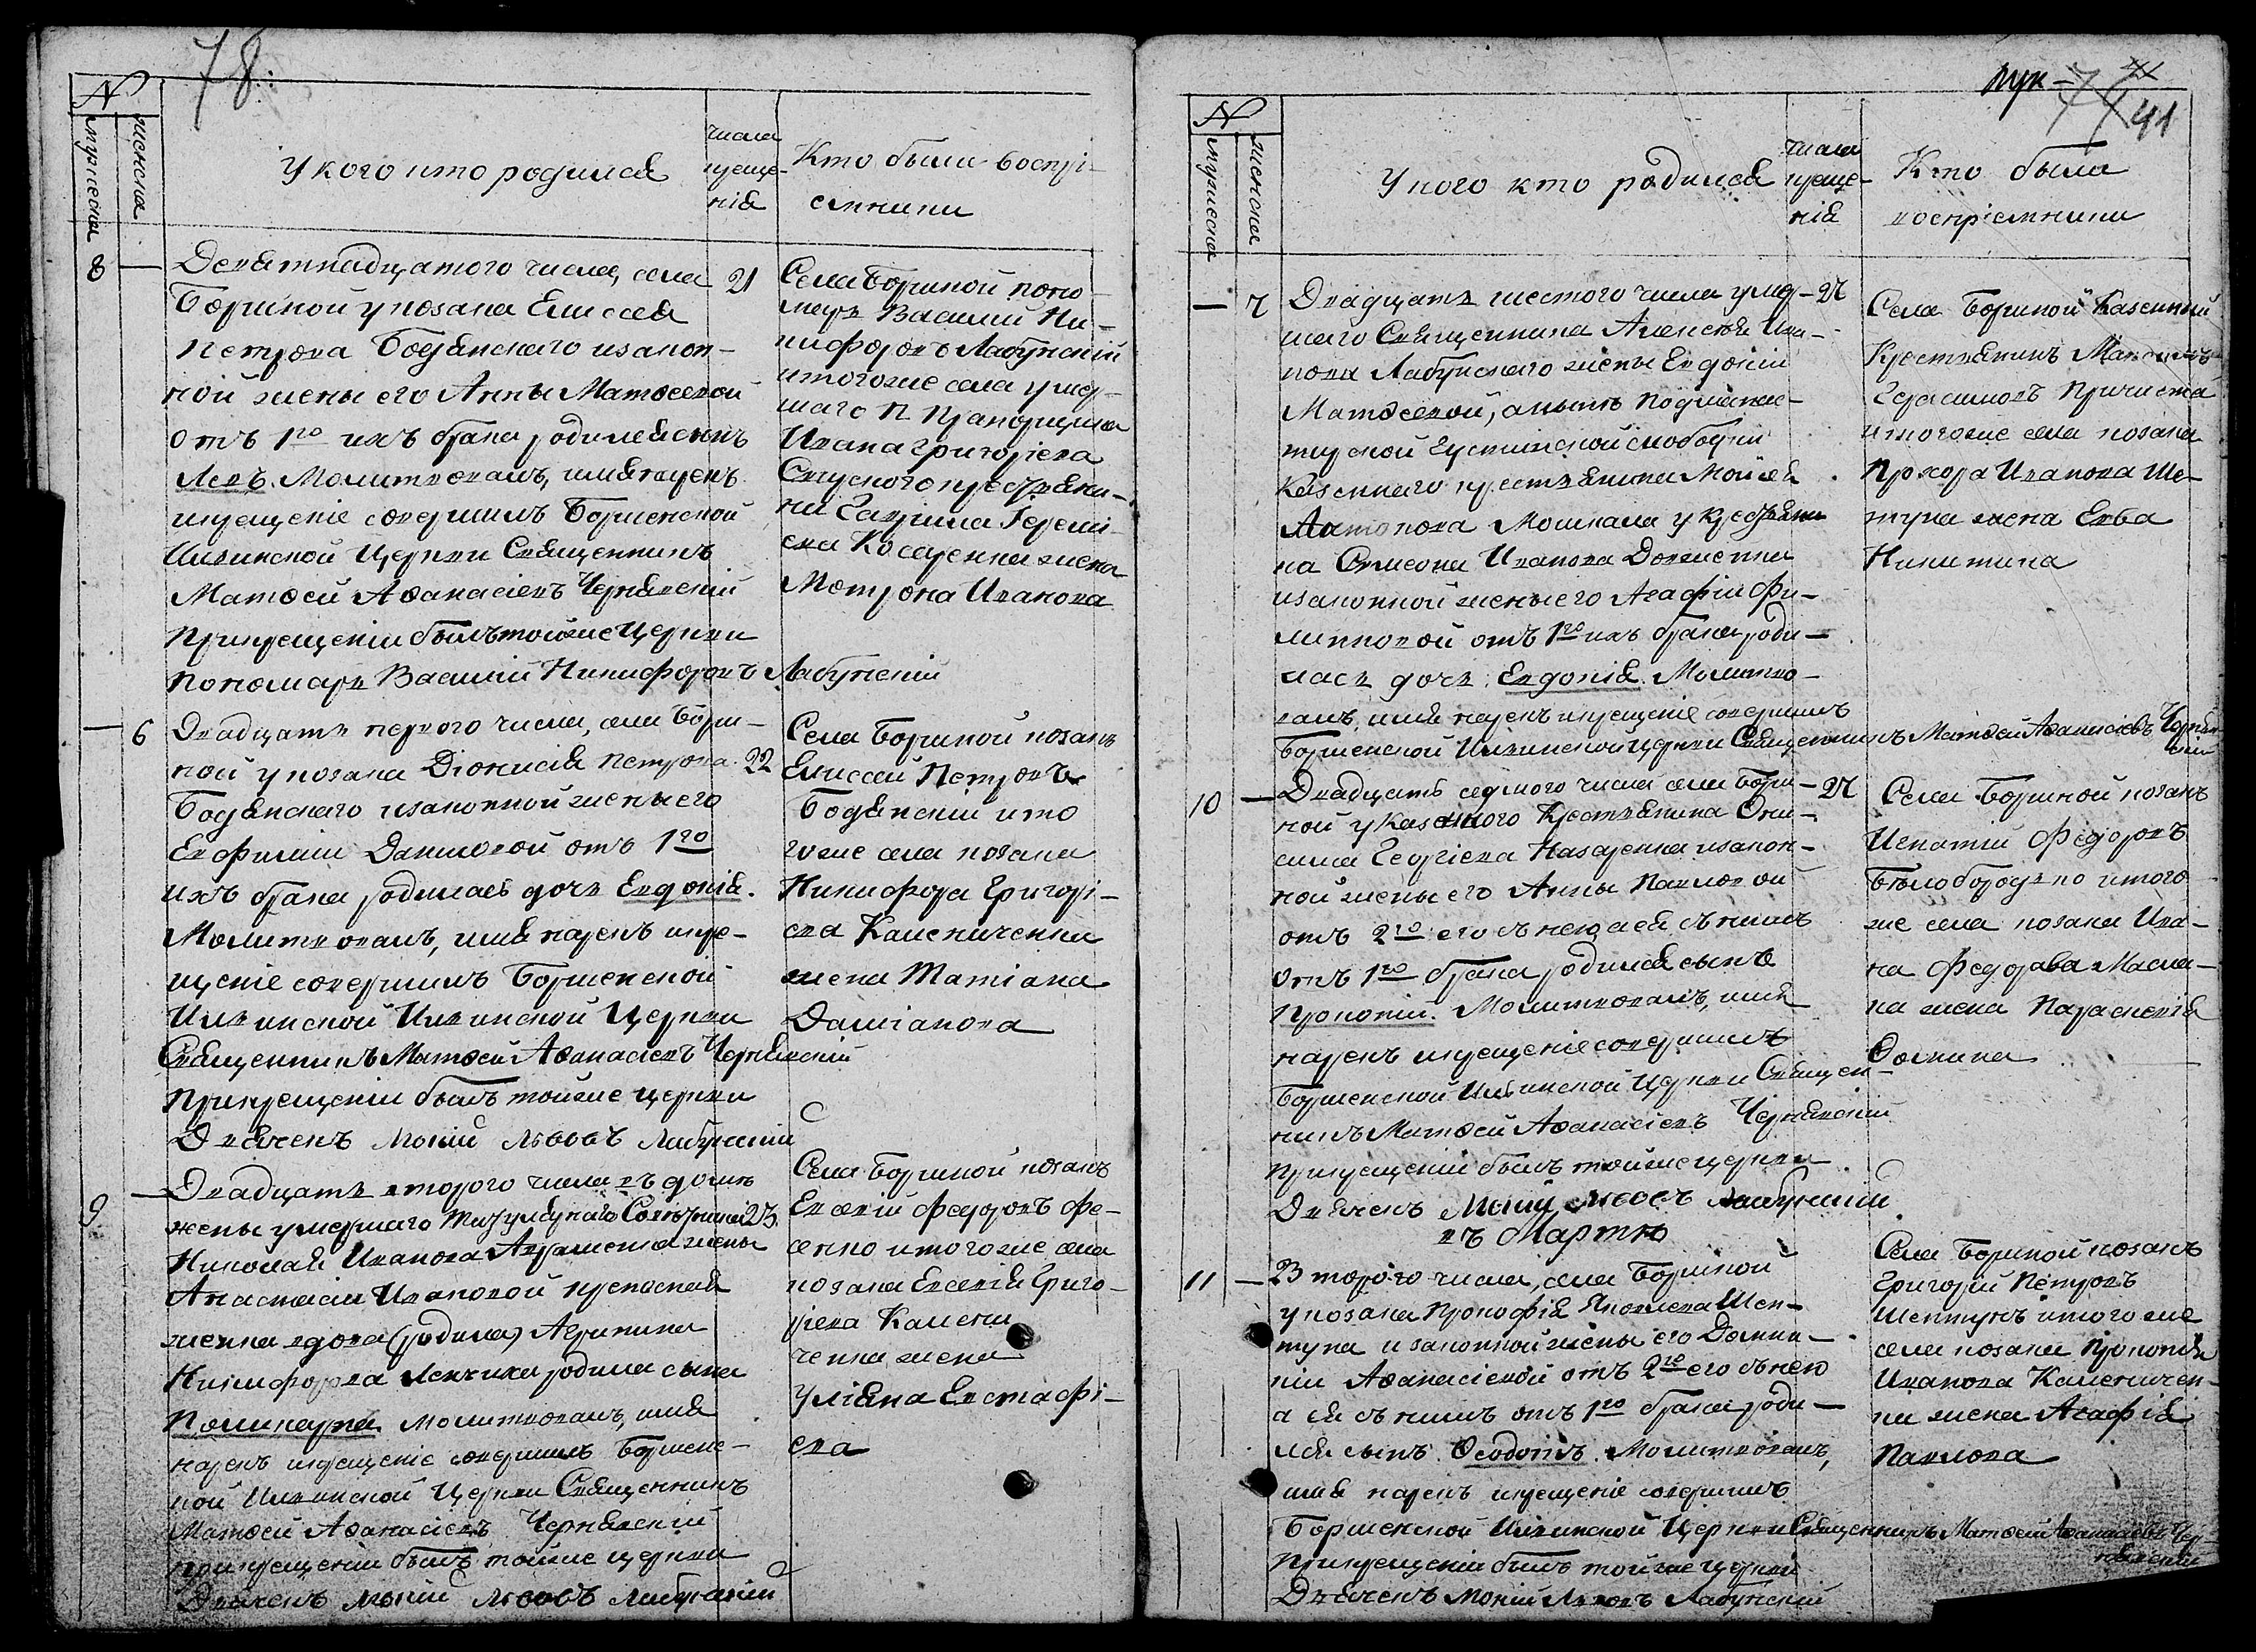 78.
N
мужеска
женска
У кого кто родился
числа
креще-
нія
Кто были воспрі-
емники
8 — Девятнадцатого числа, села
Борзной у козака Елисея
Петрова Бодянскаго изакон-
ной жены его Анны Матвеевой
отъ 1го ихъ брака родился сынъ
Левъ. Молитвовалъ, имя нарекъ
икрещеніе совершилъ Борзенской
Илвинской Церкви Священникъ
Матѳей Аѳанасіевъ Чернявскій
Прикрещеніи былъ тойже Церкви
Пономарь Василій Никифоровъ Лабунскій
21
Села Борзной поно-
марь Василий Ни-
кифоровъ Лабунскій
итогоже села умер-
шаго П Прапорщика
Ивана Григоріева
крестьяни-
на Гаврила
ева Косаренка жена
Мотрона Иванова
— 6 Двадцать первого числа, села Борз-
ной у козака Діонисія Петрова
Бодянскаго изаконной жены его
Евфиміи Даниловой отъ 1го
ихъ брака родилась дочь Евдокія.
Молитвовалъ, имя нарекъ икре-
щеніе совершилъ Борзенской
Илвинской Илвинской Церкви
Священникъ Матѳей Аѳанасіевъ Чернявскій
Прикрещеніи былъ тойже церкви
Дьячекъ Мокій Львовъ Лабунскій
22
Села Борзной козакъ
Елисей Петровъ
Бодянскій ито
гоже села козака
Никифора Григорі-
ева Калениченка
жена Татіана
Даміанова
9 — Двадцать второго числа въ домѣ
жены умершаго Титулярнаго Совѣтника
Николая Иванова жены
Анастасіи Ивановой крепостная
женка вдова (родила) Агрипина
Никифорова родила сына
Поликарпа Молитвовалъ, имя
нарекъ икрещеніе совершилъ Борзенс-
кой Илвинской Церкви Священникъ
Матѳей Аѳанасіевъ Чернявскій
Прикрещеніи былъ тойже церкви
Дьячекъ Мокій Львовъ Лабунскій
23
Села Борзной козакъ
Евсевій Федоровъ Фе-
сенко итогоже села
козака Евсевія Григо-
ріева Калени
ченка жена
Уліяна Евстафі-
ева
41
N
мужеска
женска
У кого кто родился
числа
креще-
нія
Кто были
воспріемники
— 7 Двадцать шестого числа умер-
шаго Священника Алексѣя Ива-
нова Лабунскаго жены Евдокіи
Матѳеевой, аныне подмонас-
тирской слободки
Казеннаго крестьянина Мойсея
Антонова Мошкала у Крестьяни
на Симеона Иванова
изаконной жены его Агафіи Фи-
липповой отъ 1го ихъ брака роди-
лась дочь Евдокія. Молитво-
валъ, имя нарекъ икрещеніе совершилъ
Борзенской Илвинской церкви Священникъ Матѳей Аѳанасіевъ Черняв
скій
27
Села Борзной Казенный
Крестьянинъ
Герасимовъ Причиста
итогоже села козака
Прохора Иванова Ше-
туна жена Евва
Никитина
10 — Двадцать седмого числа села Борз-
ной у Казенного Крестьянина Они-
сима Георгіева Назаренка изакон-
ной жены его Анны Павловой
отъ 2го его снею аея снимъ
отъ 1го брака родился сынъ
Прокопій. Молитвовалъ, имя
нарекъ икрещеніе совершилъ
Борзенской Ильинской Церкви Священ-
никъ Матѳей Аѳанасіевъ Чернявскій
Прикрещеніи былъ тойже церкви
Дьячекъ Мокій Львовъ Лабунскій
27
Села Борзной козакъ
Игнатій Федоровъ
Бѣлобородько итого-
же села козака Ива-
на Федорова Масла-
ка жена Параскевія
Фомина
въ Мартѣ
11 — Второго числа, села Борзной
у козака Прокофія Яковлева Шеп-
туна изаконной жены его Домни-
кіи Аѳанасіевой отъ 2го его снею
а ея снимъ отъ 1го брака роди-
лся сынъ Ѳеодотъ. Молитвовалъ,
имя нарекъ икрещеніе совершилъ
Борзенской Илвинской Церкви Священникъ Матѳей Аѳанасіевъ Чер-
нявскій
Прикрещеніи былъ тойже церкви
Дьячекъ Мокій Львовъ Лабунскій
Села Борзной козакъ
Григорій Петровъ
Шептунъ итого же
села козака Прокопія
Иванова Каленичен-
ка жена Агафія
Павлова